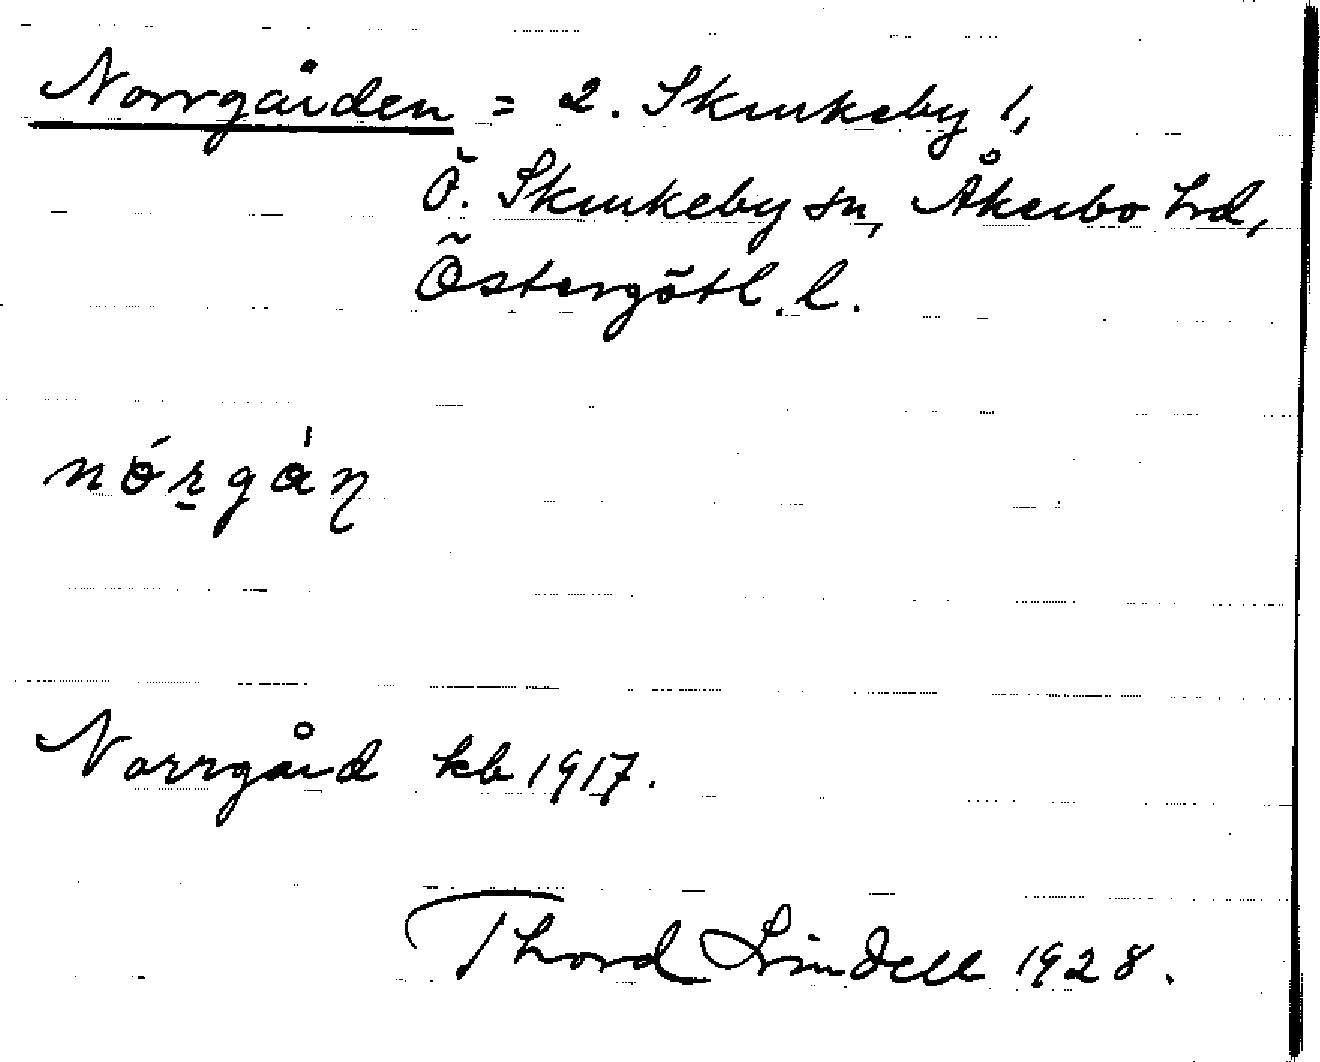 Norrgården = 2. Skrukeby 1,
Ö. Skrukeby sn, Åkerbo hd,
Östergötl. l.
nórgàn
Norrgård kb 1917.
Thord Lindell 1928.